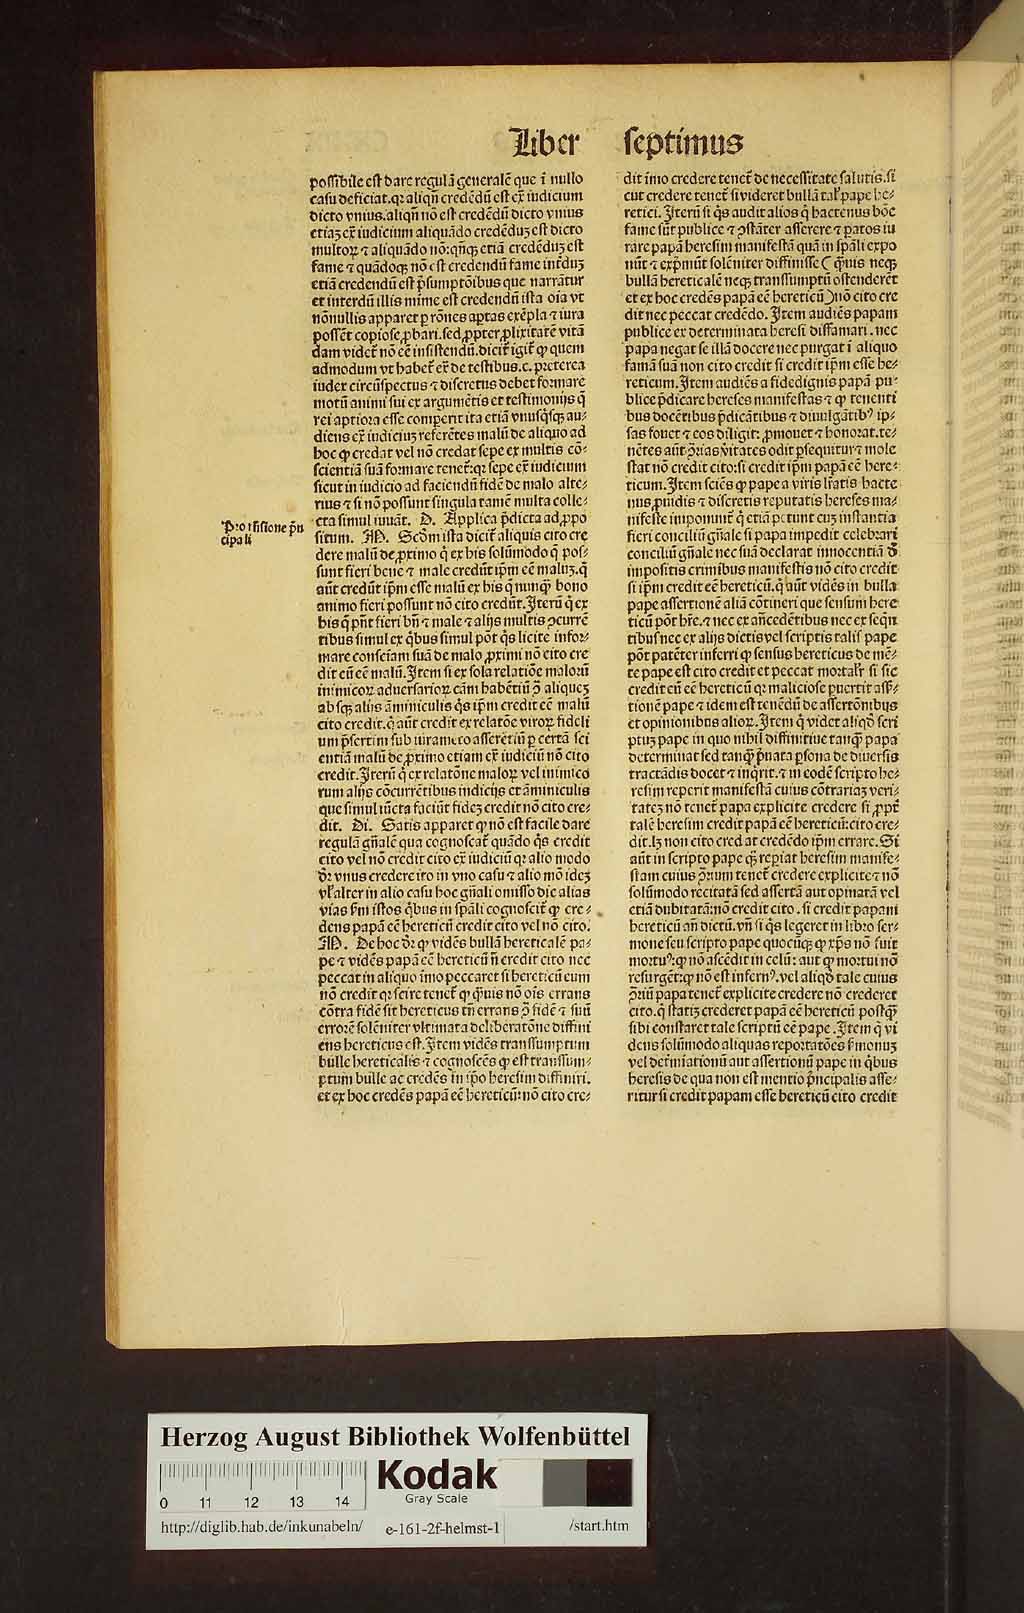 Liber septimus
possibile est dare regulā generalē que ī nullo
casu deficiat. qr aliqñ credēdū est ex̄ iudicium
dicto vnius. aliqñ nō est credēdū dicto vnius
etiaꝫ ex̄ iudicium aliquādo credēduꝫ est dicto
multoꝝ ⁊ aliquādo nō: qñqꝫ etiā credēduꝫ est
fame ⁊ quādoqꝫ nō est credendū fame interduꝫ
etiā credendū est p̄sumptōibus que narrātur
et interdū illis mīme est credendū ista oīa vt
nōnullis apparet ꝑ rōnes aptas exēpla ⁊ iura
possēt copiose ꝓbari. sed ꝓpter ꝓlixitatē vitā
dam videt̄ nō eē insistendū. dicit̄ igit̄ ꝙ quem
admodum vt habet̄ ex̄ de testibus. c. preterea
iudex circūspectus ⁊ discretus debet formare
motū animi sui ex argumētis et testimonijs q̄
rei aptiora esse comperit ita etiā vnusq̄sqꝫ au-
diens ex̄ iudiciuꝫ referētes malū de aliquo ad
hoc ꝙ credat vel nō credat sepe ex multis cō-
scientiā suā formare tenet̄: qr sepe ex̄ iudicium
sicut in iudicio ad faciendū fidē de malo alte-
rius ⁊ si nō possunt singula tamē multa colle-
cta simul iuuāt. D. Applica p̄dicta ad ꝓpo
situm. M. Scōm ista dicit̄ aliquis cito cre
dere malū de ꝓximo q̄ ex his solūmodo q̄ pos-
sunt fieri bene ⁊ male credūt ip̄m eē maluꝫ. q̄
aūt credūt ip̄m esse malū ex his q̄ nunqꝫ bono
animo fieri possunt nō cito credūt. Iterū q̄ ex
his q̄ pn̄t fieri bn̄ ⁊ male ⁊ alijs multis ꝯcurrē
tibus simul ex q̄bus simul pōt q̄s licite infor-
mare consciam suā de malo ꝓximi nō cito cre
dit eū eē malū. Item si ex sola relatiōe malorū
inimicoꝝ aduersarioꝝ cām habētiū ꝯ̄ aliqueꝫ
absqꝫ alijs āminiculis q̄s ip̄m credit eē malū
cito credit. q̄ aūt credit ex relatōe viroꝝ fideli
um p̄sertim sub iuramēto asseretiū ꝑ certā sci
entiā malū de ꝓximo etiam ex̄ iudiciū nō cito
credit. Iterū q̄ ex relatōne maloꝝ vel inimico
rum alijs cōcurrētibus indicijs et āminiculis
que simul iūcta faciūt fideꝫ credit nō cito cre-
dit. Di. Satis apparet ꝙ nō est facile dare
regulā gn̄alē qua cognoscat̄ quādo q̄s credit
cito vel nō credit cito ex̄ iudiciū qr alio modo
dr̄ vnus credere cito in vno casu ⁊ alio mō ideꝫ
vl̓ alter in alio casu hoc gn̄ali omisso dic alias
vias scd̄m istos q̄bus in sp̄ali cognoscit̄ ꝙ cre-
dens papā eē hereticū credit cito vel nō cito.
M. De hoc dr̄ ꝙ vidēs bullā hereticalē pa-
pe ⁊ vidēs papā eē hereticū n̄ credit cito nec
peccat in aliquo īmo peccaret si hereticū eum
nō credit qr scire tenet̄ ꝙ q̄uis nō oīs errans
cōtra fidē sit hereticus tn̄ errans ꝯ̄ fidē ⁊ suū
errorē solēniter vltimata deliberatōne diffini
ens hereticus est. Item vidēs transsumptum
bulle hereticalis ⁊ cognoscēs ꝙ est transsum-
ptum bulle ac credēs in ip̄o heresim diffiniri.
et ex hoc credēs papā eē hereticū: nō cito cre-
Pro r̄sisione p̄n
cipali
dit īmo credere tenet̄ de necessitate salutis. si
cut credere tenet̄ si videret bullā tal̓ pape he-
retici. Iterū si q̄s audit alios q̄ hactenus bōe
fame fūt publice ⁊ ꝯstāter asserere ⁊ ꝑatos iu
rare papā heresim manifestā quā in sp̄ali expo
nūt ⁊ exp̄mūt solēniter diffinisse (q̄uis neqꝫ
bullā hereticalē neqꝫ transsumptū ostenderēt
et ex hoc credēs papā eē hereticū) nō cito cre
dit nec peccat credēdo. Item audiēs papam
publice ex determinata heresi diffamari. nec
papa negat se illā docere nec purgat ī aliquo
famā suā non cito credit si credit ip̄m esse he-
reticum. Item audiēs a fidedignis papā pu-
blice p̄dicare hereses manifestas ⁊ ꝙ tenenti
bus docētibus p̄dicātibus ⁊ diuulgātibꝰ ip-
sas fouet ⁊ eos diligit: ꝓmouet ⁊ honorat. te-
nētes aūt ꝯ̄rias v̄itates odit ꝑsequitur ⁊ mole
stat nō credit cito: si credit ip̄m papā eē here-
ticum. Item sciēs ꝙ papa a viris lr̄atis hacte
nus ꝓuidis ⁊ discretis reputatis hereses ma-
nifeste imponunt̄ q̄ etiā petunt cuꝫ instantia
fieri conciliū gn̄ale si papa impedit celebrari
conciliū gn̄ale nec suā declarat innocentiā de
impositis crimibus manifestis nō cito credit
si ip̄m credit eē hereticū. q̄ aūt vidēs in bulla
pape assertionē aliā cōtineri que sensum here
ticū pōt hr̄e. ⁊ nec ex an̄cedētibus nec ex seqn̄
tibus nec ex alijs dictis vel scriptis talis pape
pōt patēter inferri ꝙ sensus hereticus de mē-
te pape est cito credit et peccat mortal̓r si sic
credit eū eē hereticū qr maliciose ꝑuertit asser-
tionē pape ⁊ idem est tenēdū de assertōnibus
et opinionibus alioꝝ. Item q̄ videt aliqd̄ scri
ptuꝫ pape in quo nihil diffinitiue tanqꝫ papa
determinat sed tanqꝫ p̄uata ꝑsona de diuersis
tractādis docet ⁊ inq̄rit. ⁊ in eodē scripto he-
resim reperit manifestā cuius cōtrariaꝫ veri-
tateꝫ nō tenet̄ papa explicite credere si ꝓpt̄
talē heresim credit papā eē hereticū: cito cre-
dit. lꝫ non cito credat credēdo ip̄m errare. Si
aūt in scripto pape qꝫ reꝑiat heresim manife-
stam cuius ꝯ̄rium tenet̄ credere explicite ⁊ nō
solūmodo recitatā sed assertā aut opinatā vel
etiā dubitatā: nō credit cito. si credit papam
hereticū an̄ dictū. vn̄ si q̄s legeret in libro ser-
mone seu scripto pape quocūqꝫ ꝙ xp̄s nō fuit
mortuꝰ: ꝙ nō ascēdit in celū: aut ꝙ mortui nō
resurgēt: ꝙ nō est infernꝰ. vel aliqd̄ tale cuius
ꝯ̄riū papa tenet̄ explicite credere nō crederet
cito. q̄ statiꝫ crederet papā eē hereticū postqꝫ
sibi constaret tale scriptū eē pape. Item q̄ vi
dens solūmodo aliquas reportatōes s̄monuꝫ
vel det̄miationū aut assertionū pape in q̄bus
heresis de qua non est mentio p̄ncipalis asse-
ritur si credit papam esse hereticū cito credit
Herzog August Bibliothek Wolfenbüttel
Kodak
Gray Scale
0 11 12 13 14
http://diglib.hab.de/inkunabeln/ e-161-2f-helmst-1 /start.htm